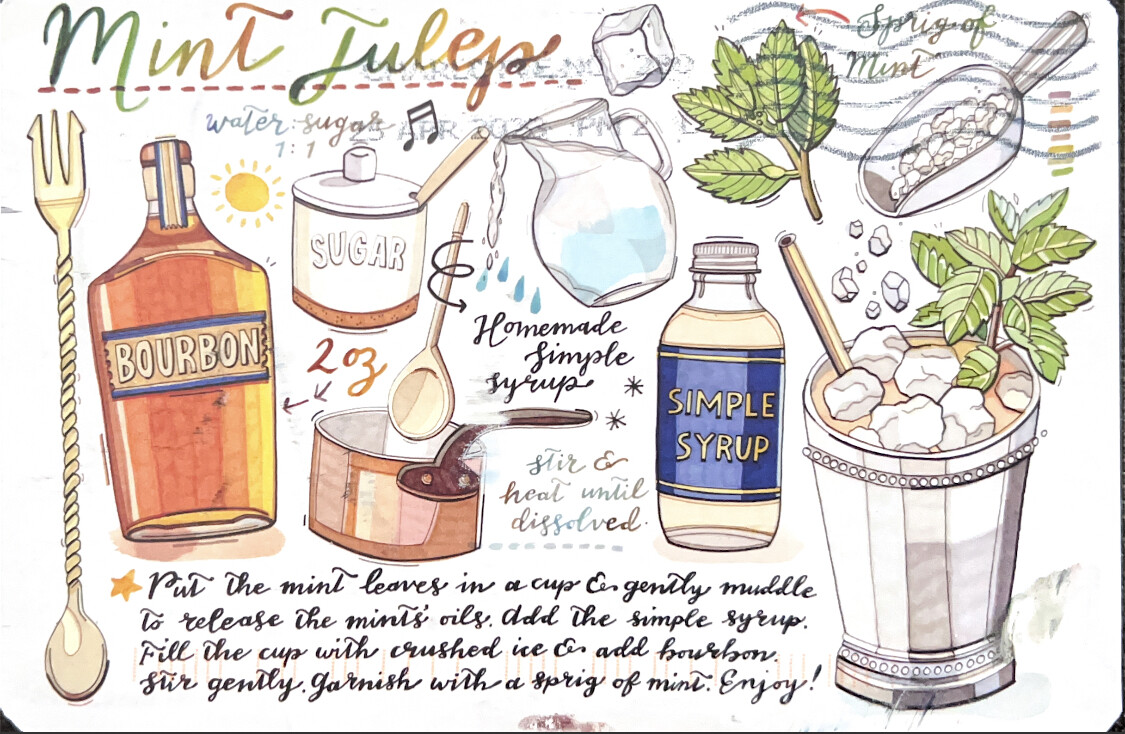 Mint Juleps
Sprig of
Mint
water:sugar
1:1
25 APR
SUGAR
BOURBON
2oz
Homemade
Simple
syrup
SIMPLE
SYRUP
stir &
heat until
dissolved.
Put the mint leaves in a cup & gently muddle
to release the mints' oils. Add the simple syrup.
Fill the cup with crushed ice & add bourbon.
Stir gently. Garnish with a sprig of mint. Enjoy!